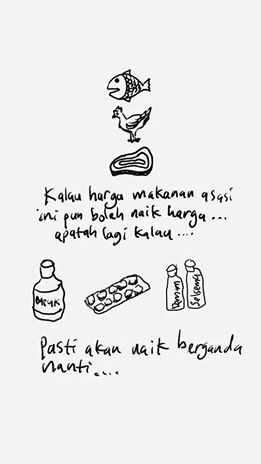 Kalau harga makanan asasi
ini pun boleh naik harga...
apatah lagi kalau ....
Batuk
Demam
Selsema
Pasti akan naik berganda
nanti....